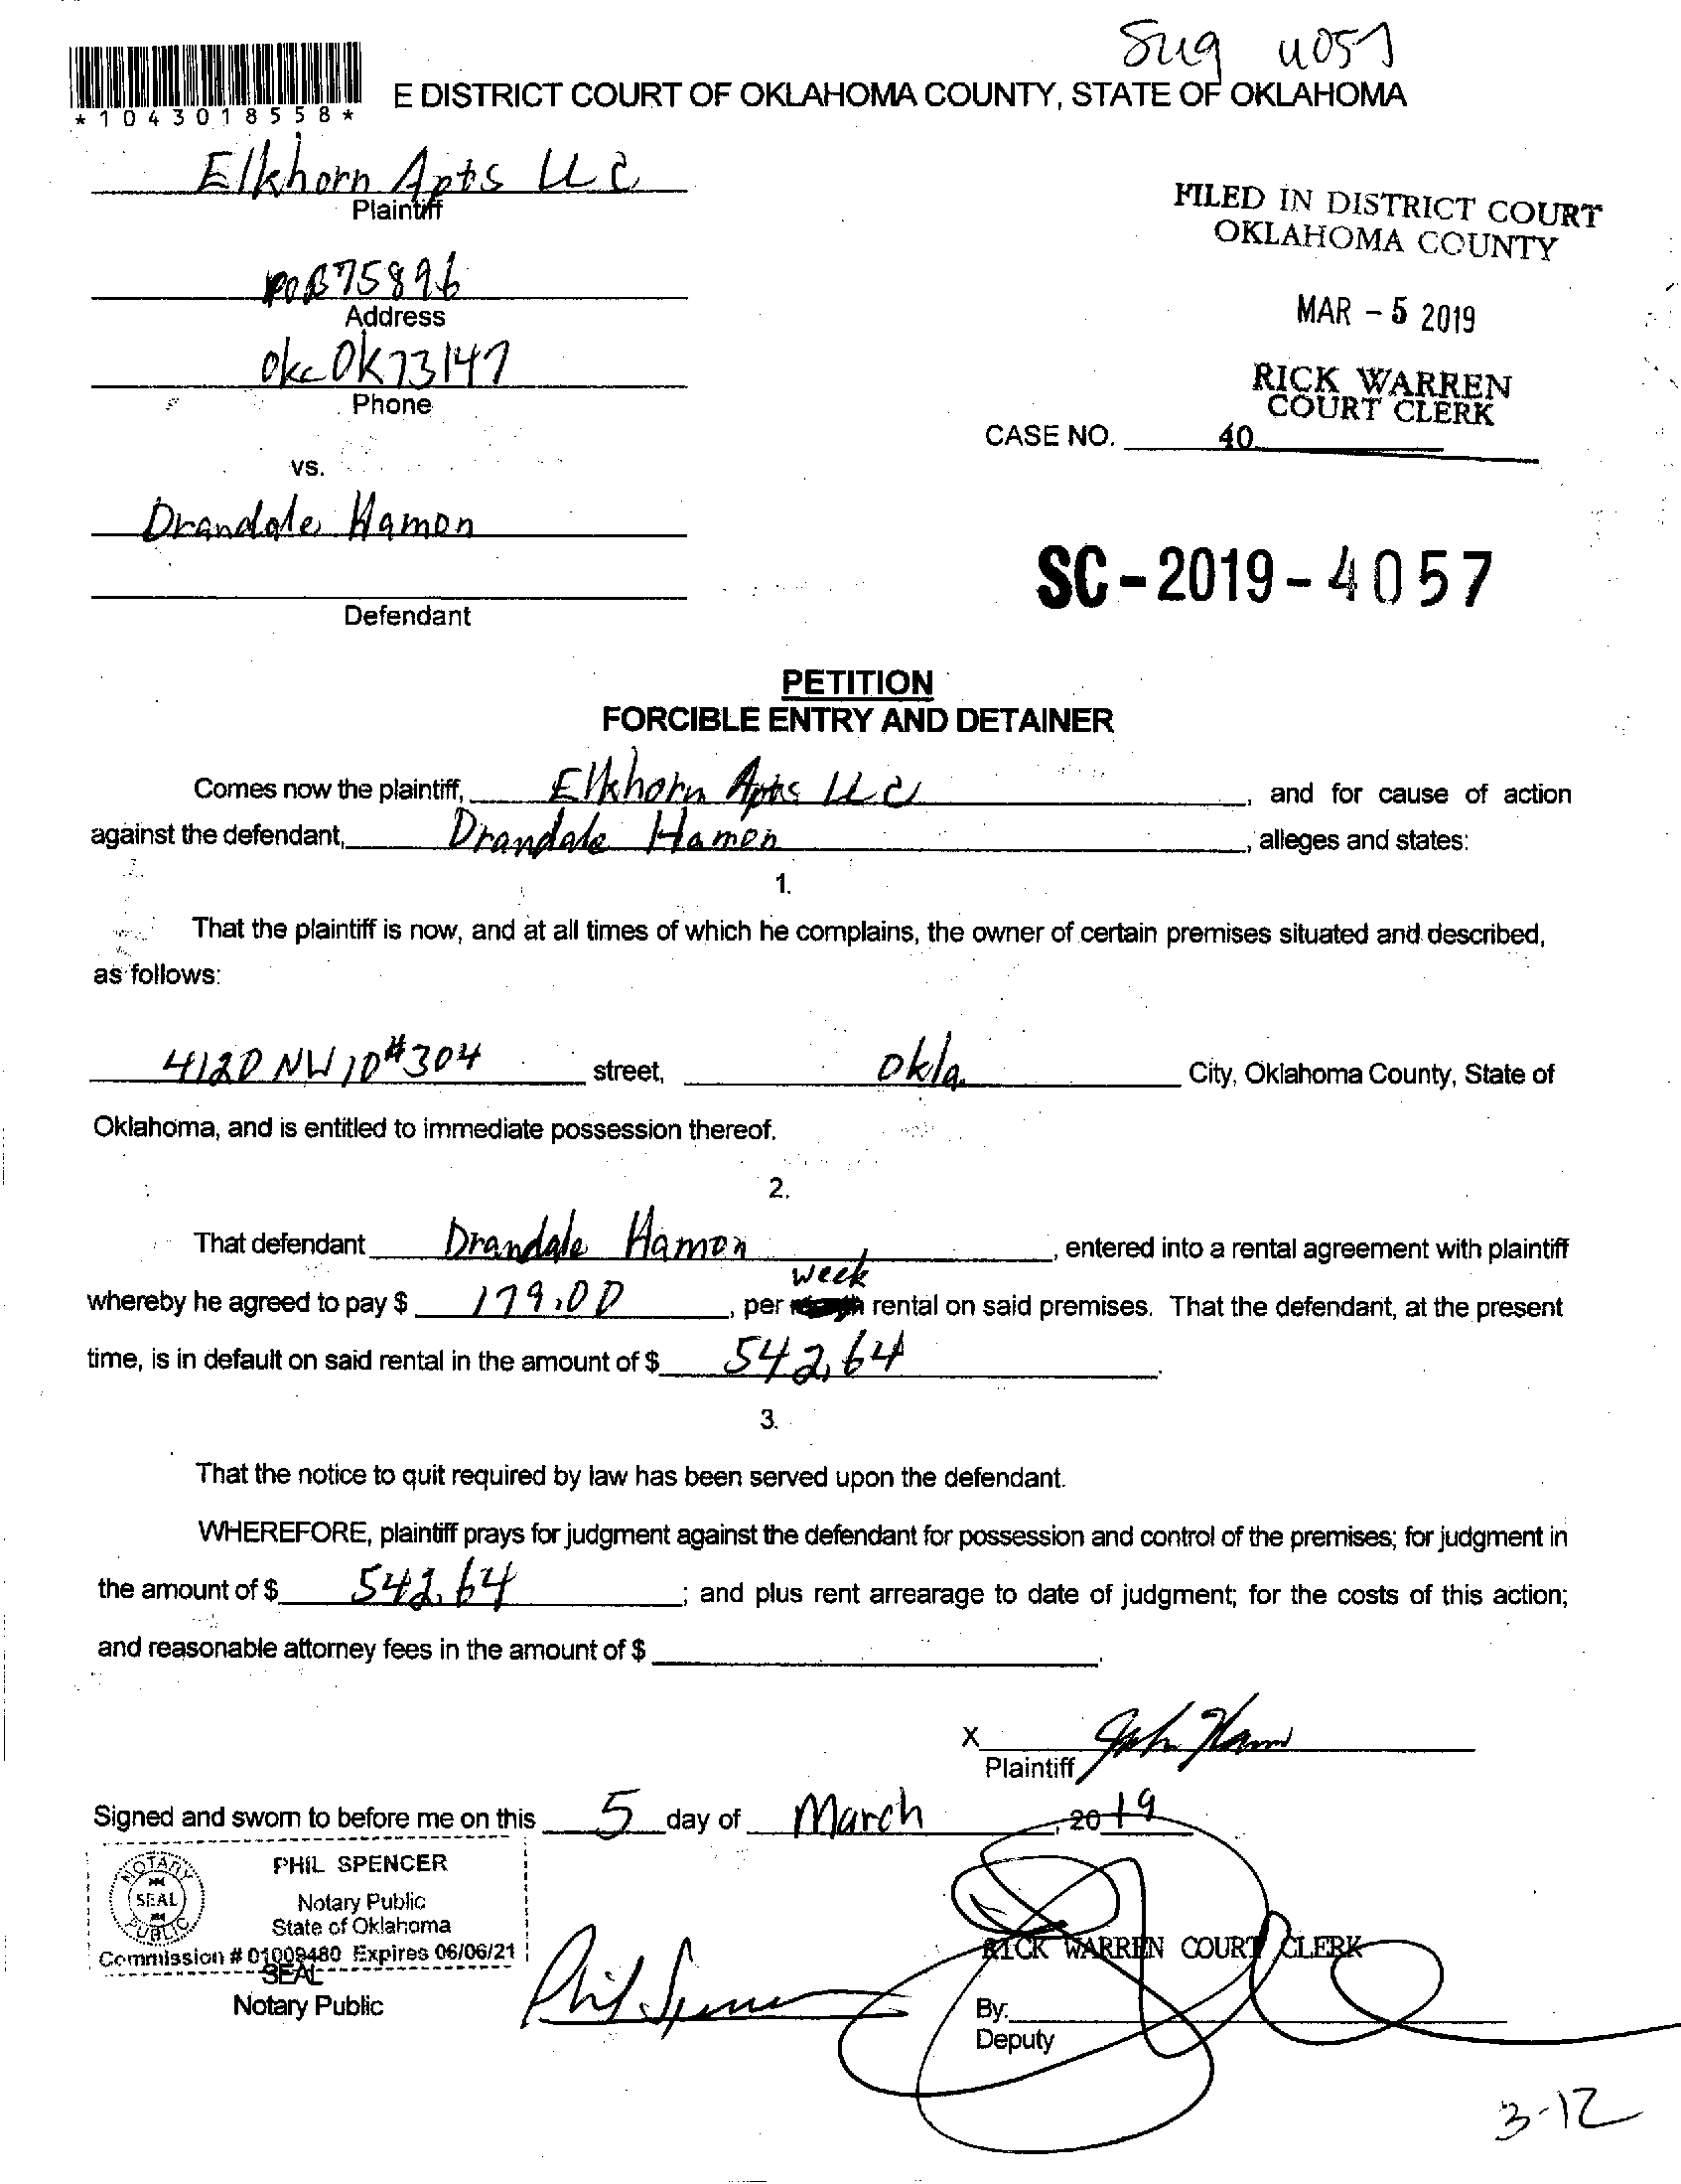 Sug 4057
*1043018558*
E DISTRICT COURT OF OKLAHOMA COUNTY, STATE OF OKLAHOMA
Elkhorn Apts LLC
Plaintiff
POB 75896
Address
okc OK 73147
Phone
vs.
Drandale Hamon
Defendant
FILED IN DISTRICT COURT
OKLAHOMA COUNTY
MAR - 5 2019
RICK WARREN
COURT CLERK
CASE NO. 40
SC-2019-4057
PETITION
FORCIBLE ENTRY AND DETAINER
Comes now the plaintiff, Elkhorn Apts LLC, and for cause of action
against the defendant, Drandale Hamon, alleges and states:
1.
That the plaintiff is now, and at all times of which he complains, the owner of certain premises situated and described,
as follows:
4120 NW 10 #304 street, Okla. City, Oklahoma County, State of
Oklahoma, and is entitled to immediate possession thereof.
2.
That defendant Drandale Hamon, entered into a rental agreement with plaintiff
week
whereby he agreed to pay $ 179.00, per rental on said premises. That the defendant, at the present
time, is in default on said rental in the amount of $ 542.64.
3.
That the notice to quit required by law has been served upon the defendant.
WHEREFORE, plaintiff prays for judgment against the defendant for possession and control of the premises; for judgment in
the amount of $ 542.64; and plus rent arrearage to date of judgment; for the costs of this action;
and reasonable attorney fees in the amount of $ .
X
Plaintiff
Signed and sworn to before me on this 5 day of March, 2019
NOTARY PUBLIC
SEAL
PHIL SPENCER
Notary Public
State of Oklahoma
Commission # 01009480 Expires 06/06/21
SEAL
Notary Public
Phil Spencer
RICK WARREN COURT CLERK
By:
Deputy
3-12